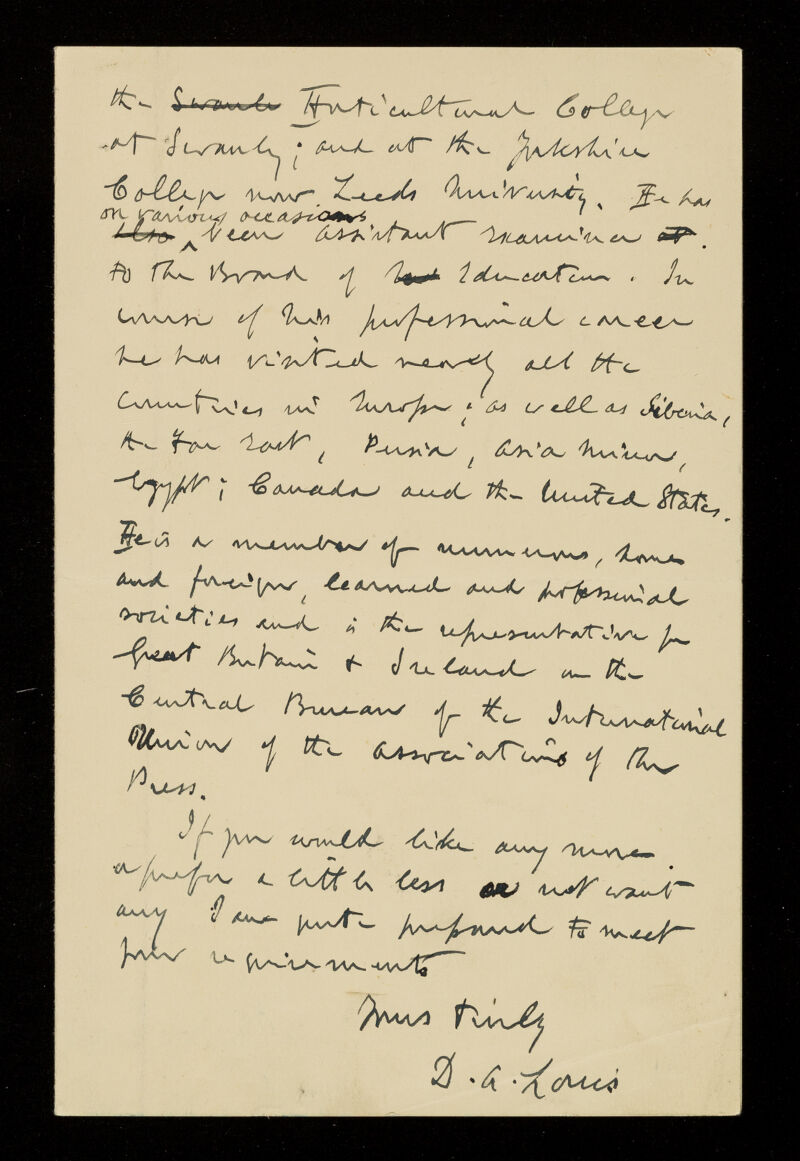 the Swanle Horticultural College
at Swanley; and at the Yorkshire
College now Leeds University. He has
on various occasions
also been assistant examiner at.
to the Board of Education. In
course of his professional career
he has visited nearly all the
countries in Europe; as well as Siberia,
the Far East, Persia, Asia Minor,
Egypt; Canada and the United States.
He is a member of numerous, home
and foreign, learned and professional
societies and is the representative for
Great Britain & Ireland on the
Central Bureau of the International
Union of the Associations of the
Press.
If you would like any more
or prefer a little less or not want
any I am quite prepared to meet
your requirements
Yours truly
D. A. Louis